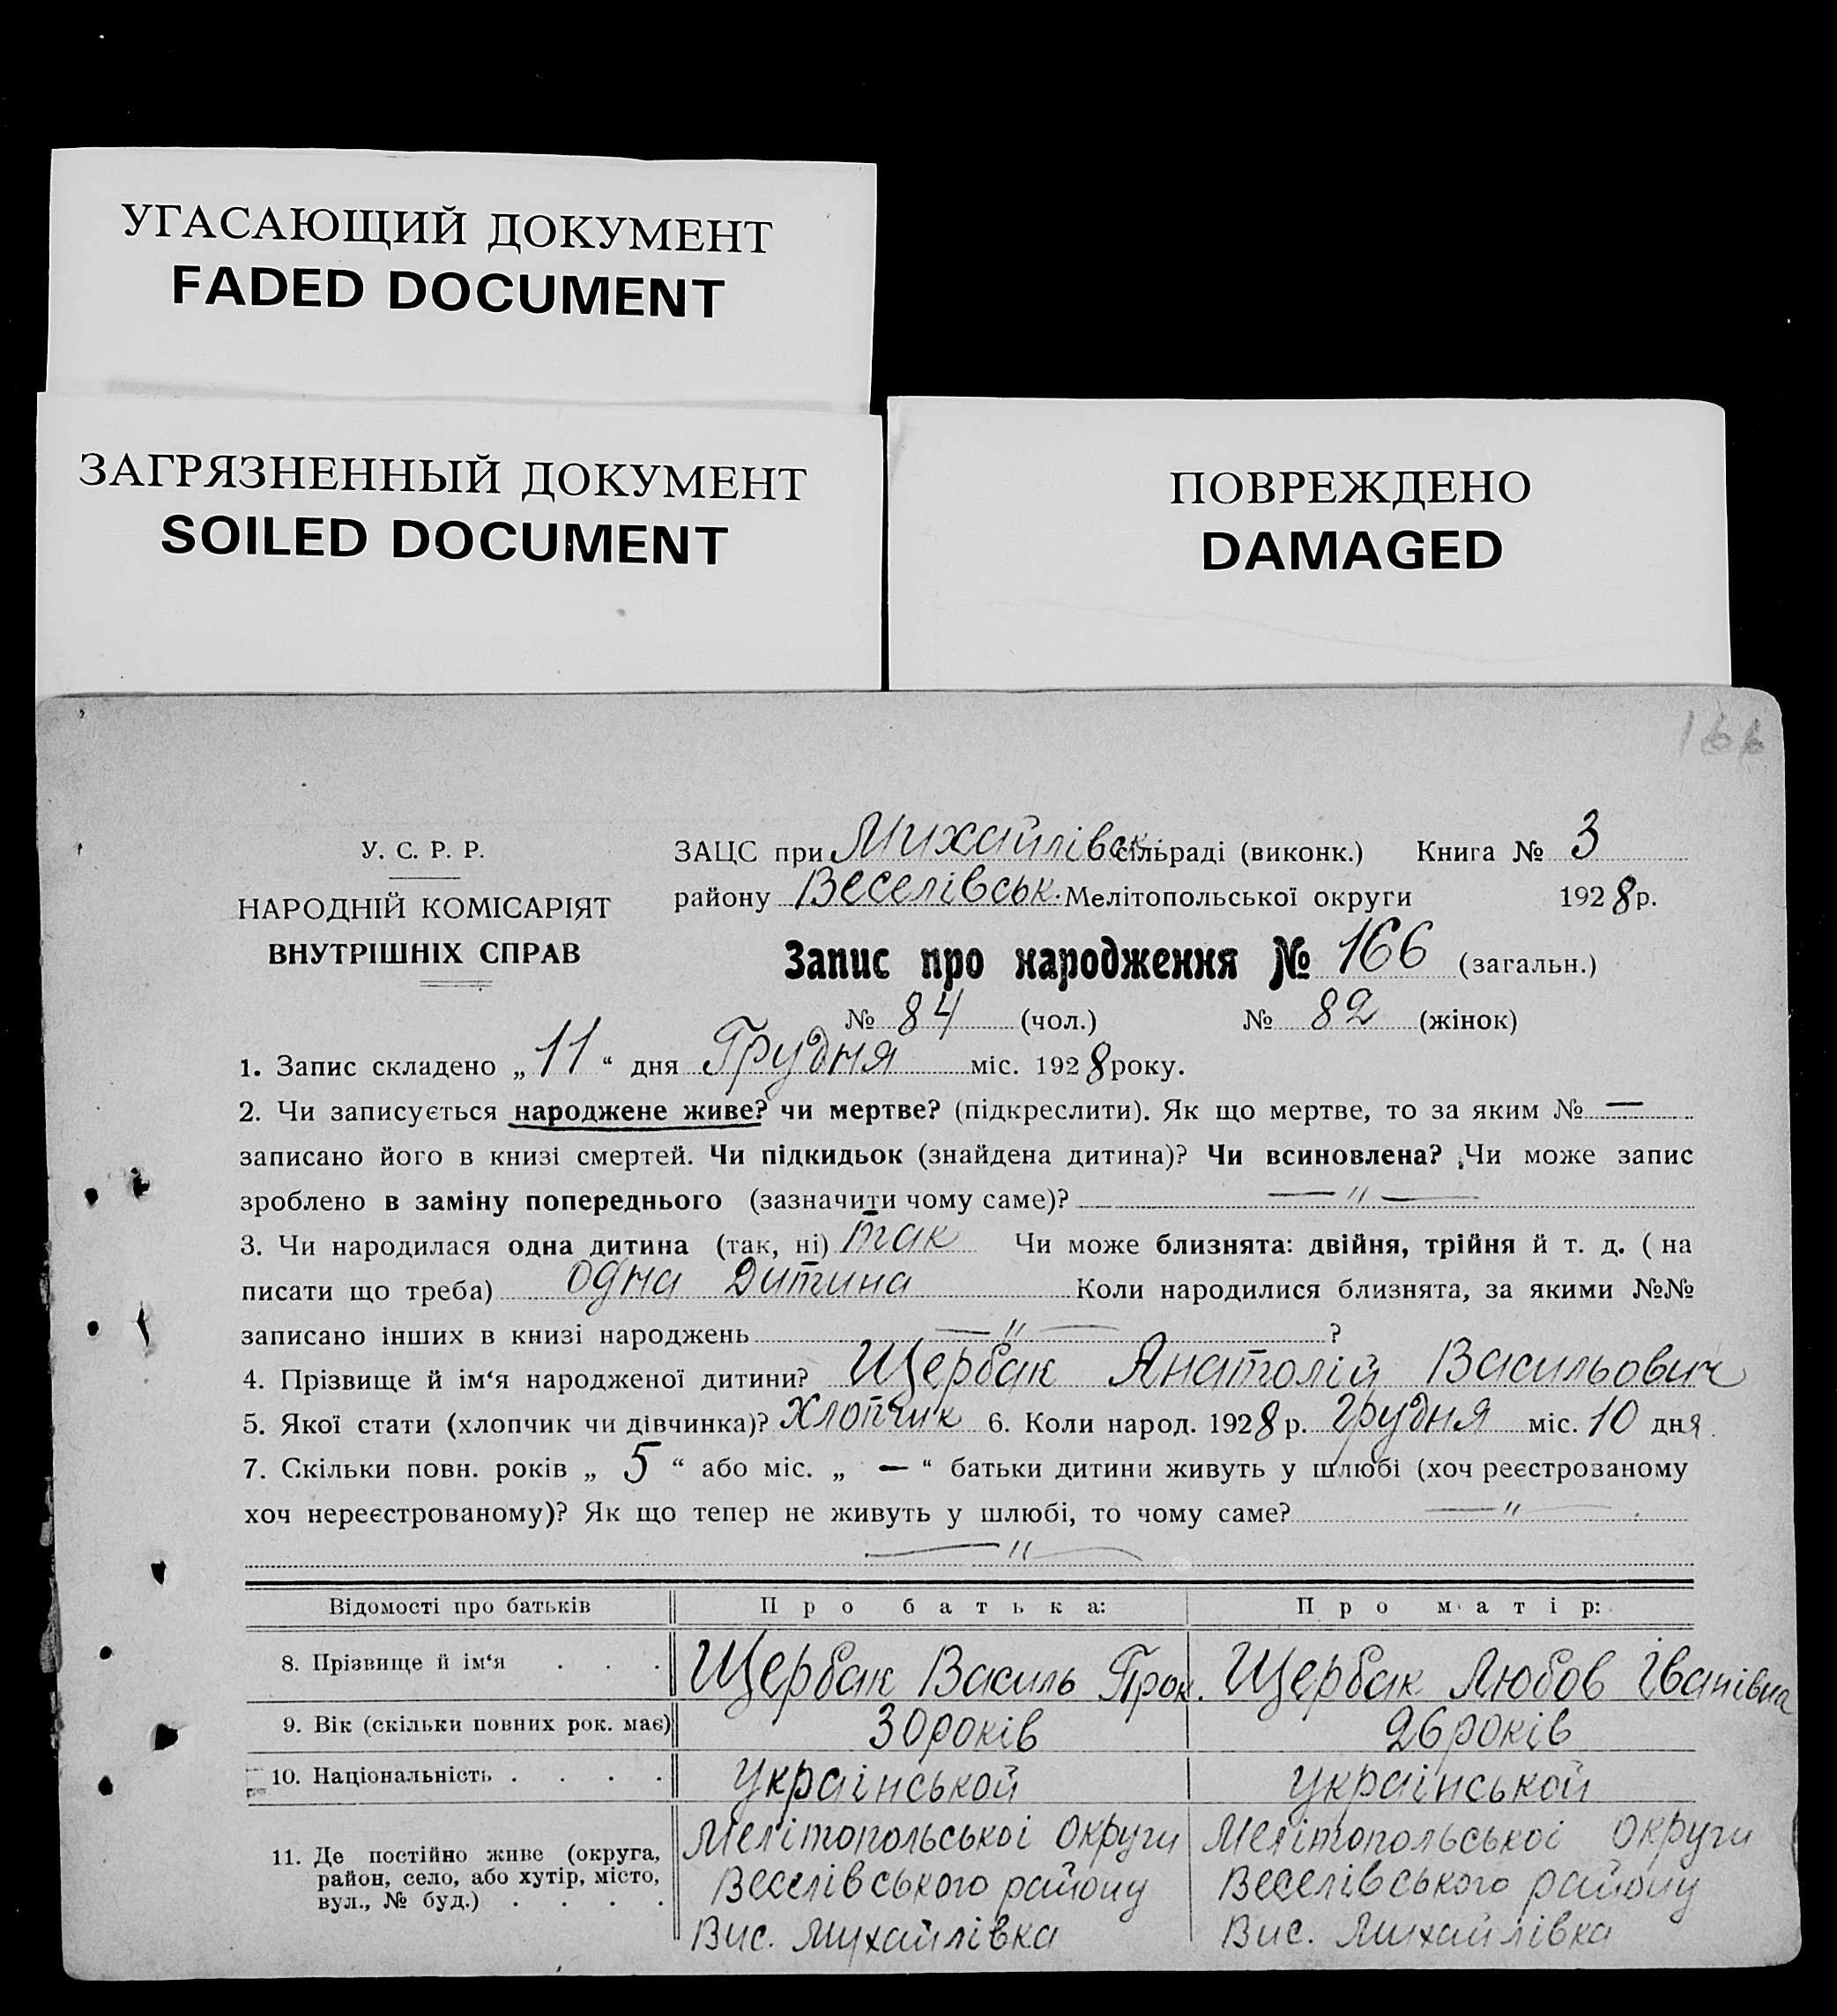 УГАСАЮЩИЙ ДОКУМЕНТ
FADED DOCUMENT
ЗАГРЯЗНЕННЫЙ ДОКУМЕНТ
SOILED DOCUMENT
ПОВРЕЖДЕНО
DAMAGED
166
У. С. Р. Р.
НАРОДНІЙ КОМІСАРІЯТ
ВНУТРІШНІХ СПРАВ
ЗАЦС при Михайлівськ. сільраді (виконк.) Книга № 3
району Веселівськ. Мелітопольської округи 1928 р.
Запис про народження № 166 (загальн.)
№ 84 (чол.) № 82 (жінок)
1. Запис складено „ 11 “ дня Грудня міс. 1928 року.
2. Чи записується народжене живе? чи мертве? (підкреслити). Як що мертве, то за яким № —
записано його в книзі смертей. Чи підкидьок (знайдена дитина)? Чи всиновлена? Чи може запис
зроблено в заміну попереднього (зазначити чому саме)? — " —
3. Чи народилася одна дитина (так, ні) так Чи може близнята: двійня, трійня й т. д. ( на
писати що треба) одна дитина Коли народилися близнята, за якими №№
записано інших в книзі народжень — " — ?
4. Прізвище й ім‘я народженої дитини? Щербак Анатолій Васильович
5. Якої стати (хлопчик чи дівчинка)? Хлопчик 6. Коли народ. 1928 р. грудня міс. 10 дня.
7. Скільки повн. років „ 5 “ або міс. „ — “ батьки дитини живуть у шлюбі (хоч реєстрованому
хоч нереєстрованому)? Як що тепер не живуть у шлюбі, то чому саме? — " —
— " —
Відомості про батьків Про батька: Про матір:
8. Прізвище й ім‘я . . . Щербак Василь Прок. Щербак Любов Іванівна
9. Вік (скільки повних рок. має) 30 років 26 років
10. Національність . . . . Українськой Українськой
11. Де постійно живе (округа,
район, село, або хутір, місто,
вул., № буд.) . . . .
Мелітопольськоі Округи
Веселівського району
Вис. Михайлівка
Мелітопольськоі Округи
Веселівського району
Вис. Михайлівка